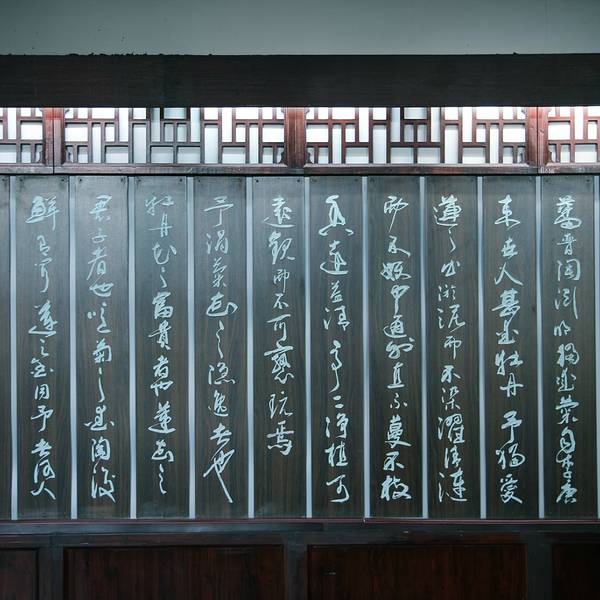 蕃晋陶渊明獨愛菊自李唐
来世人甚愛牡丹予獨愛
蓮之出淤泥而不染濯清漣
而不妖中通外直不蔓不枝
香遠益清亭亭净植可
遠觀而不可褻玩焉
予謂菊花之隱逸者也
牡丹花之富貴者也蓮花之
君子者也噫菊之愛陶後
鮮有聞蓮之愛同予者何人